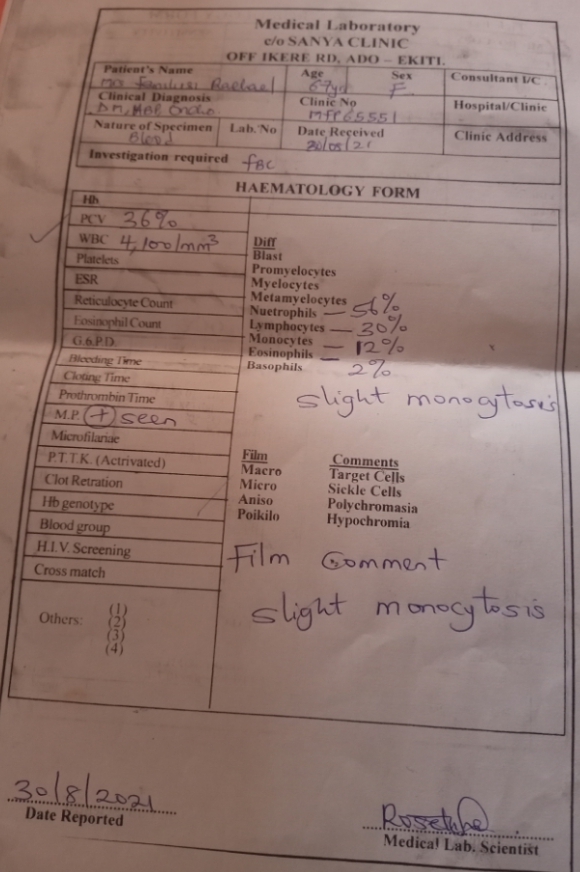 Medical Laboratory
c/o SANYA CLINIC
OFF IKERE RD, ADO – EKITI.
Patient's Name Age Sex Consultant I/C
Rachael 67yrs F
Clinical Diagnosis Clinic No Hospital/Clinic
DM, HBP
Nature of Specimen Lab. No Date Received Clinic Address
Blood 30/08/21
Investigation required FBC
HAEMATOLOGY FORM
Hb
PCV 36%
WBC 4,100/mm³
Platelets
ESR
Reticulocyte Count
Eosinophil Count
G.6.P.D.
Bleeding Time
Cloting Time
Prothrombin Time
M.P. + seen
Microfilariae
P.T.T.K. (Actrivated)
Clot Retration
Hb genotype
Blood group
H.I.V. Screening
Cross match
Others: (1)
(2)
(3)
(4)
Diff
Blast
Promyelocytes
Myelocytes
Metamyelocytes
Nuetrophils — 56%
Lymphocytes — 30%
Monocytes — 12%
Eosinophils — 2%
Basophils
slight monocytosis
Film Comments
Macro Target Cells
Micro Sickle Cells
Aniso Polychromasia
Poikilo Hypochromia
Film Comment
slight monocytosis
30/8/2021
Date Reported
Medical Lab. Scientist